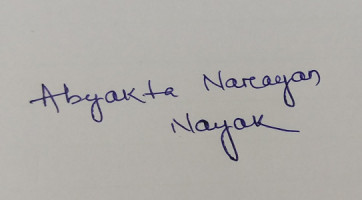 Abyakta Narayan
Nayak